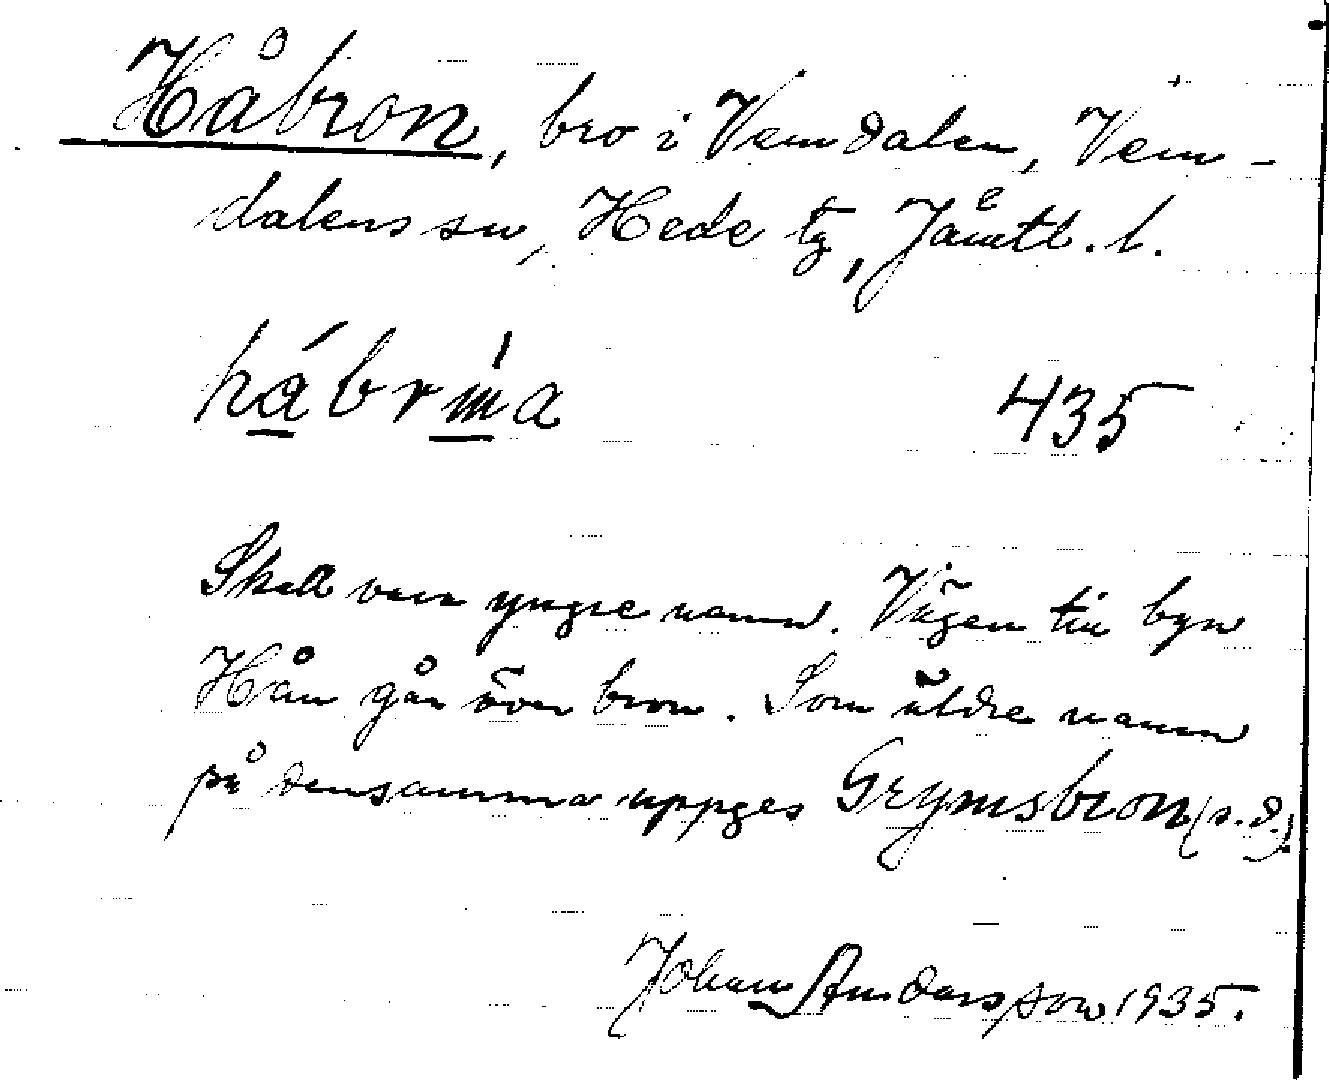 Håbron, bro i Vemdalen, Vem-
dalens sn, Hede tg, Jämtl. l.
435
Skall vara yngre namn. Vägen till byn
Hån går över bron. Som äldre namn
på densamma uppges Grymsbron (s. d.).
Johan Andersson 1935.